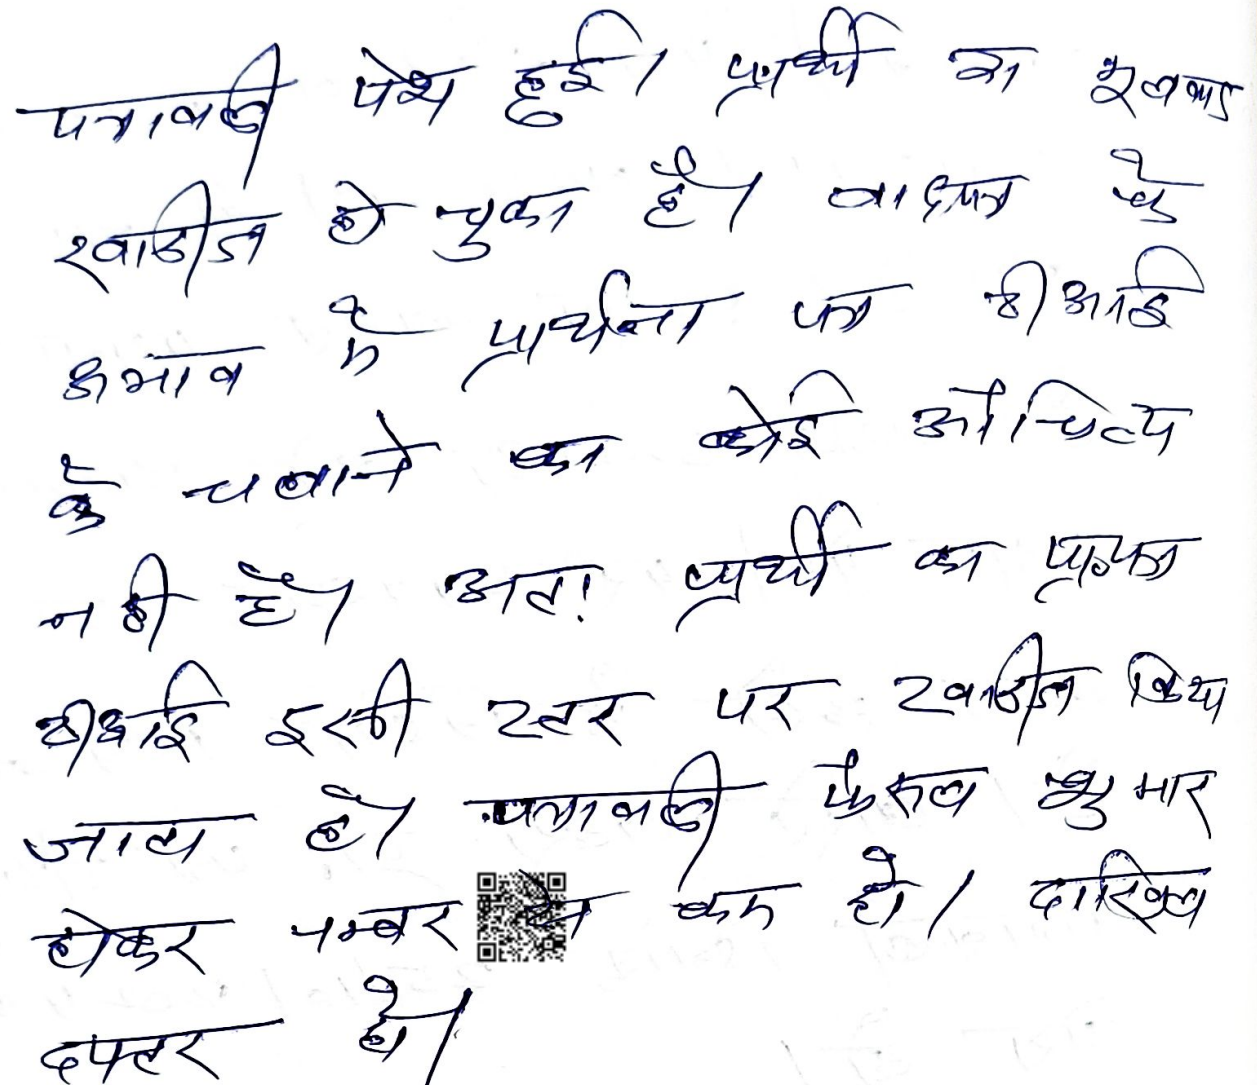 पत्रावली पेश हुई। प्रार्थी का मूलवाद
खारीज हो चुका है। वादपत्र के
अभाव में प्रार्थना पत्र टीआई
के चलाने का कोई औचित्य
नही है। अतः प्रार्थी का प्रा०पत्र
टीआई इसी स्तर पर खारीज किया
जाता है। पत्रावली फैसल शुमार
होकर नम्बर से कम हो। दाखिल
दफ्तर हो।